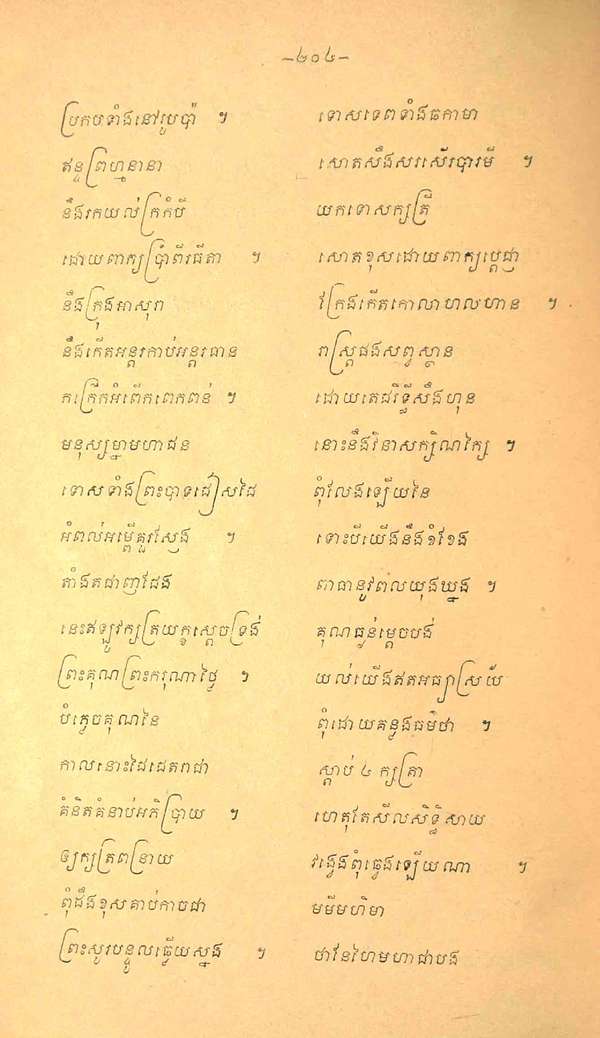 –២០៤–
ប្រកបទាំងនៅរូបប៉ា ។
ទោសទេពទាំងធកាមា
ឥន្ទព្រហ្មនានា
សោតសឹងសរសើរបារមី ។
នឹងរកយល់ក្រកំបី
យកទោសក្សត្រី
ដោយពាក្យប្រាំពីរធីតា ។
សោតខុសដោយពាក្យប្ដេជ្ញា
នឹងក្រុងអាសុរា
វ័ក្រែងកើតកោលាហលហាន ។
នឹងកើតអន្តរកាប់អន្តរធាន
រាស្ត្រផងសព្វស្ថាន
កក្រើកអំពើកពេកពន់ ។
ដោយតេជរិទ្ធីសឹងហុន
មនុស្សម្នាមហាជន
នោះនឹងវិនាសក្សិណក្សៃ ។
ទោសទាំងព្រះបាទជៀសដៃ
ពុំលែងឡើយនៃ
អំពល់អម្ពើគួរស្បែង ។
ទោះបីយើងនឹងខំខែង
តាំងតជាញជែង
ពាធានូវពលយុងឃ្នង ។
នេះឥឡូវក្សត្រយក្ខស្ដេចទ្រង់
គុណធ្ងន់ម្ដេចបង់
ព្រះគុណព្រះករុណាថ្លៃ ។
យល់យើងឥតអធ្យាស្រ័យ
បំភ្លេចគុណនៃ
ពុំដោយគន្លងធម៌ថា ។
កាលនោះដៃដេតរាជា
ស្ដាប់ ៤ ក្សត្រា
គំនិតគំនាប់អភិប្រាយ ។
ហេតុតែសីលសិទ្ធិសាយ
ឲ្យក្សត្រពន្រាយ
វង្វេងពុំធ្វេងឡើយណា ។
ពុំដឹងខុសគាប់កាចជា
មមីមហិមា
ព្រះសូរបន្ទូលធ្វើយស្នង ។
ថានែហៃមហាជាបង